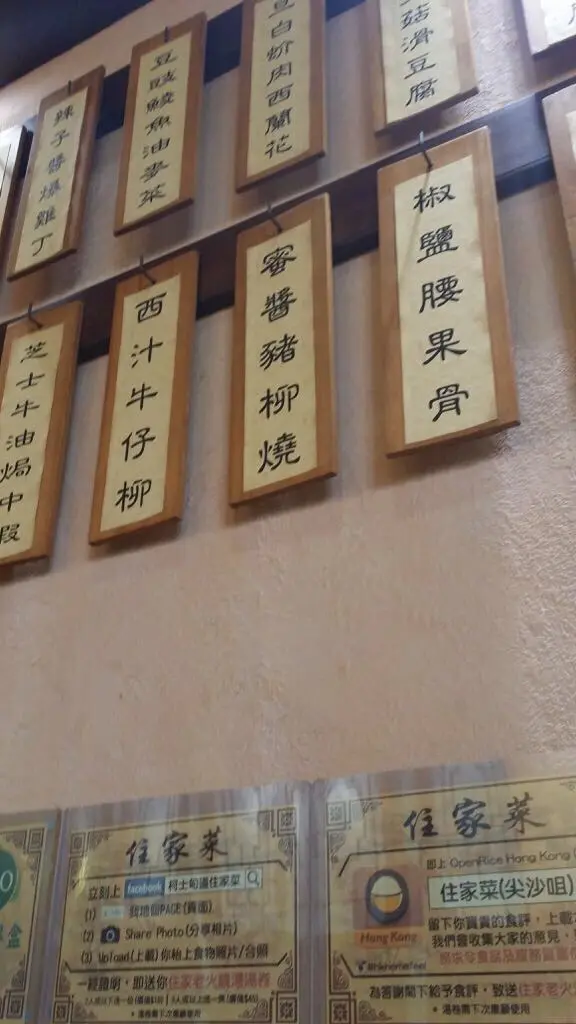 辣子醬爆雞丁
豆豉鯪魚油麥菜
白灼肉西蘭花
菇滑豆腐
芝士牛油焗中蝦
西汁牛仔柳
蜜醬豬柳燒
椒鹽腰果骨
住家菜
立刻上 facebook 柯士甸道住家菜
(1) 我地個PAGE(頁面)
(2) Share Photo(分享相片)
(3) Upload(上載)你枱上食物照片/合照
一經證明，即送你住家老火靚湯
• 湯格需下次惠顧使用
住家菜
即上 OpenRice Hong Kong
住家菜(尖沙咀)
Hong Kong
留下你寶貴的食評，上載
我們會收集大家的意見，
hkhomefeel
為答謝閣下給予食評，致送住家老火
• 湯格需下次惠顧使用
盒